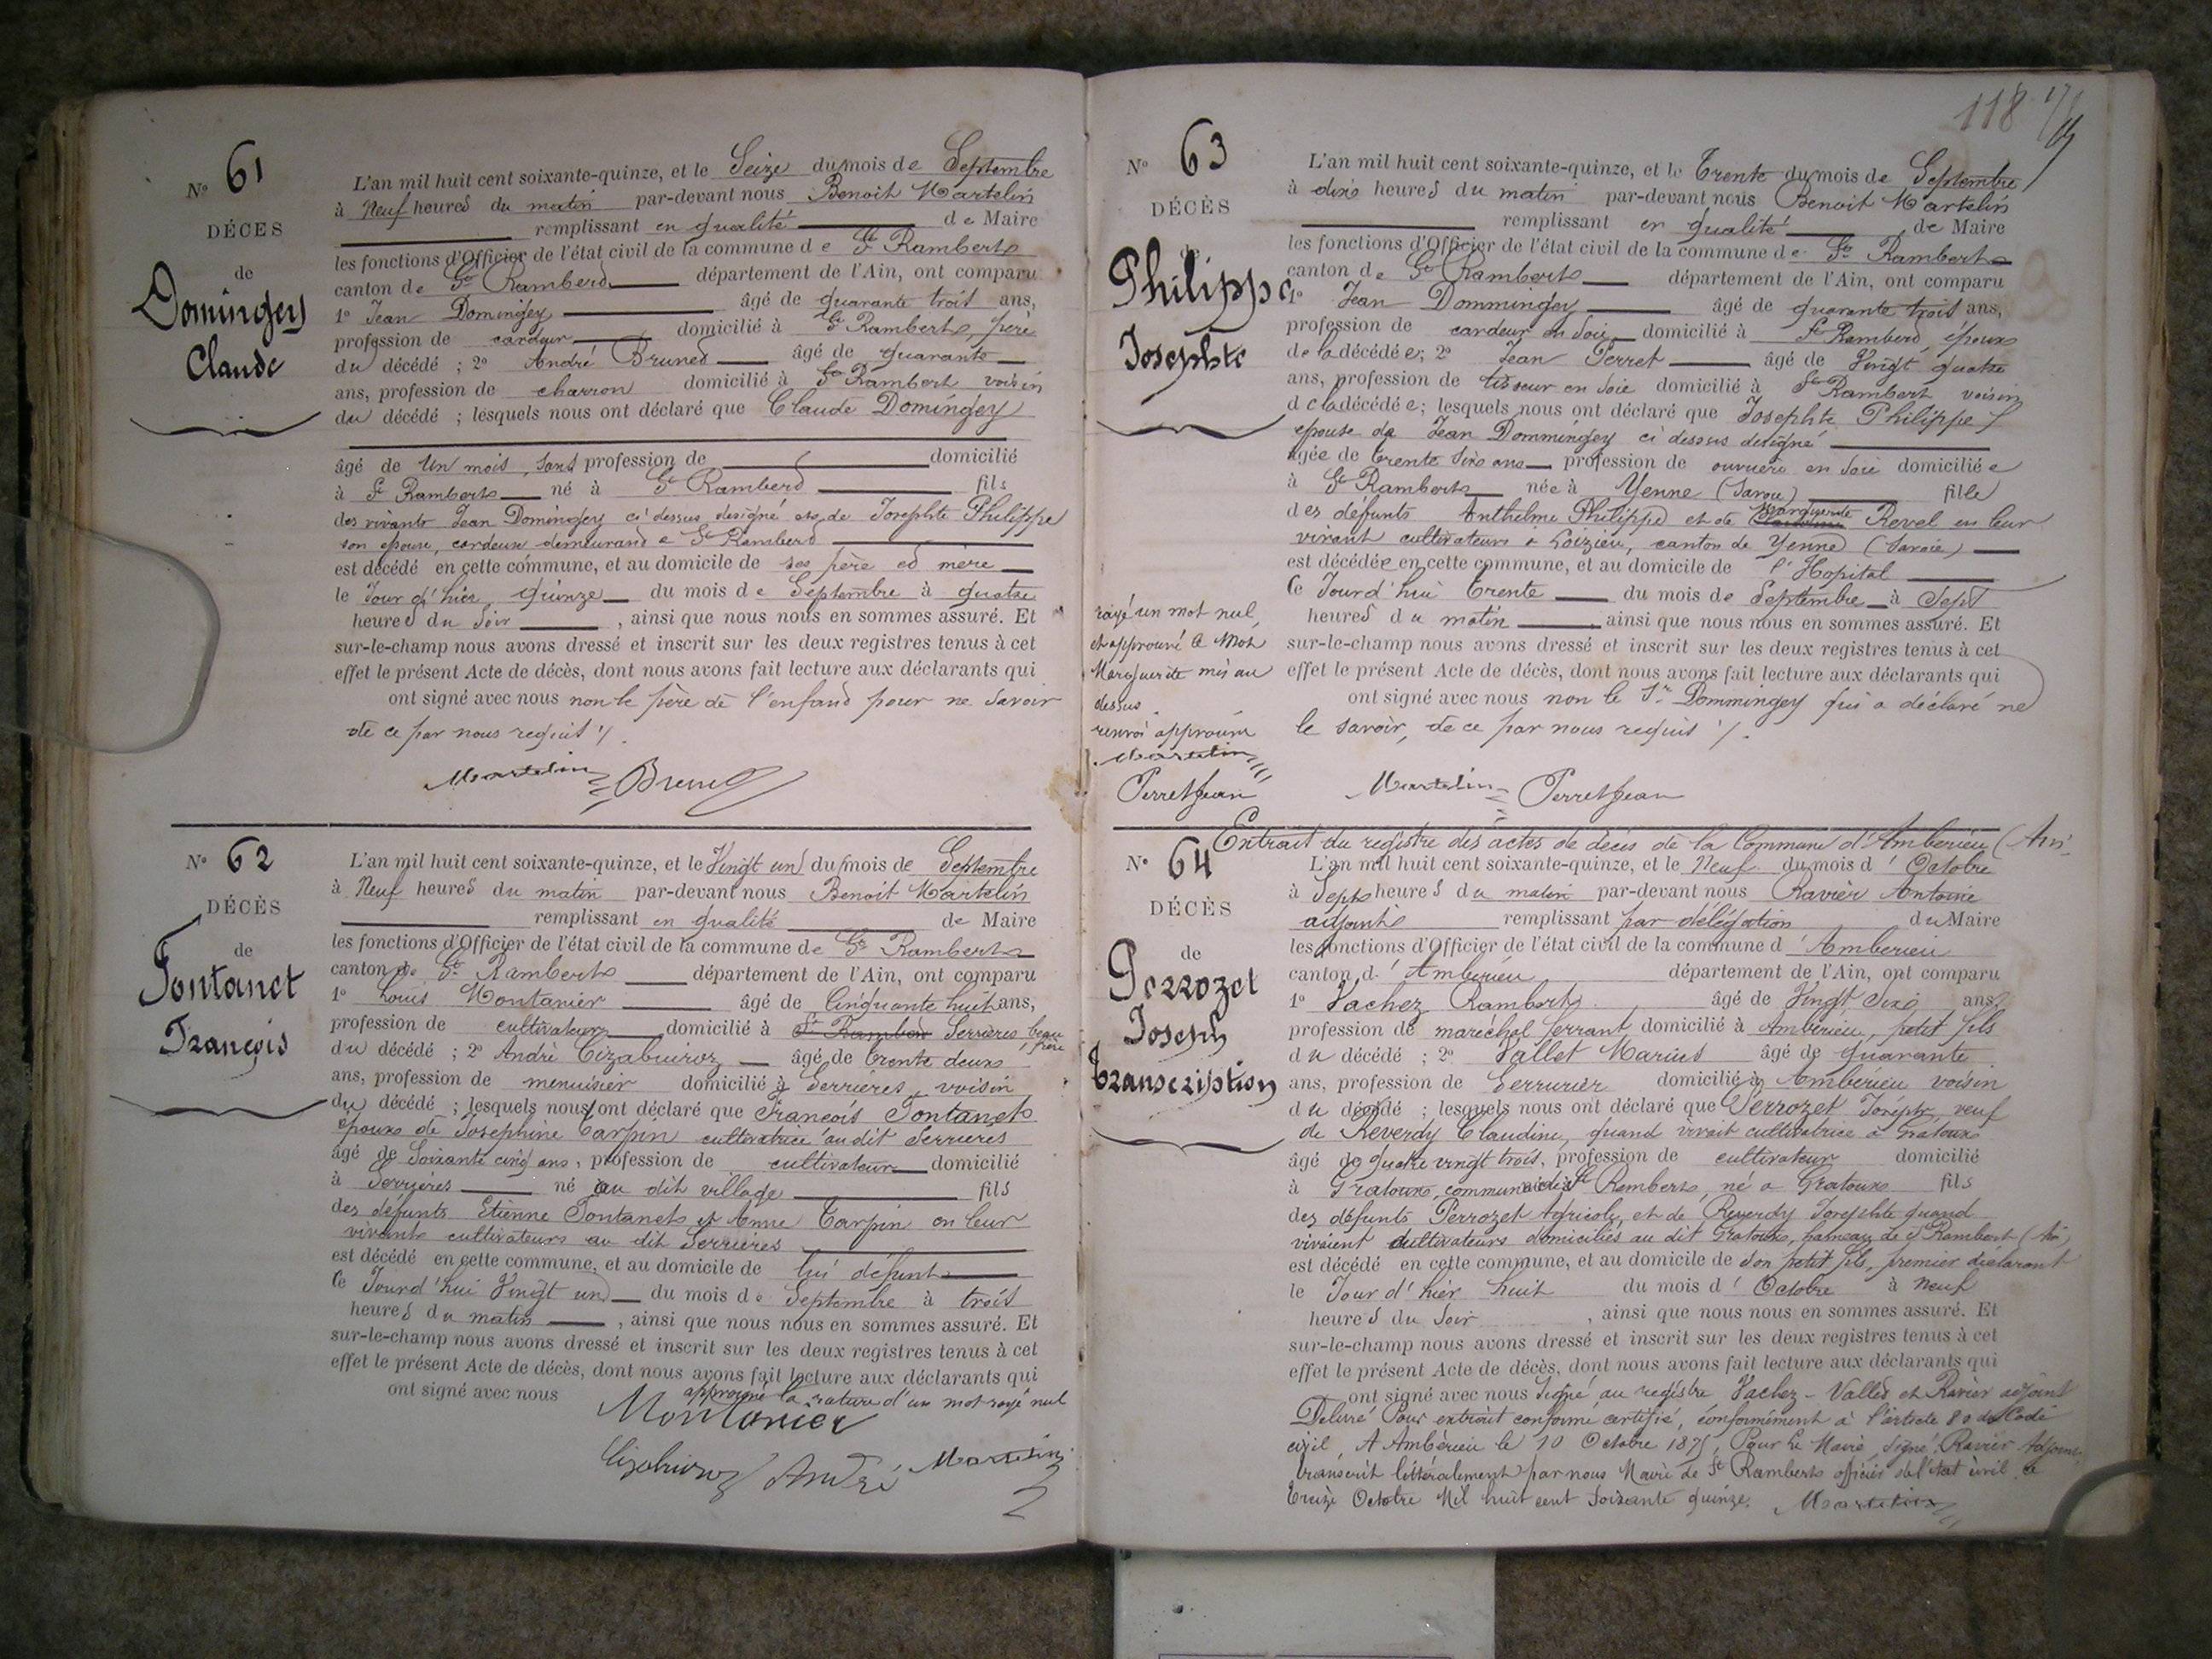 N° 61
DÉCES
de
Domingey
Claude
L'an mil huit cent soixante-quinze, et le Seize du mois de Septembre
à Neuf heures du matin par-devant nous Benoit Martelin
remplissant en qualité de Maire
les fonctions d'Officier de l'état civil de la commune de St Rambert
canton de St Rambert département de l'Ain, ont comparu
1° Jean Domingey âgé de quarante trois ans,
profession de cardeur domicilié à St Rambert, père
du décédé ; 2° André Brunet âgé de quarante
ans, profession de charron domicilié à St Rambert voisin
du décédé ; lesquels nous ont déclaré que Claude Domingey
âgé de Un mois, sans profession de domicilié
à St Rambert né à St Rambert fils
des vivants Jean Domingey ci dessus designé et de Josephte Philippe
son epouse, cardeur demeurant a St Rambert
est décédé en cette commune, et au domicile de ses père et mère
le Jour d'hier quinze du mois de Septembre à quatre
heures du Soir , ainsi que nous nous en sommes assuré. Et
sur-le-champ nous avons dressé et inscrit sur les deux registres tenus à cet
effet le présent Acte de décès, dont nous avons fait lecture aux déclarants qui
ont signé avec nous non le père de l'enfant pour ne savoir
de ce par nous requis ./.
Martelin Brunet
N° 62
DÉCÈS
de
Fontanet
François
L'an mil huit cent soixante-quinze, et le Vingt un du mois de Septembre
à Neuf heures du matin par-devant nous Benoit Martelin
remplissant en qualité de Maire
les fonctions d'Officier de l'état civil de la commune de St Rambert
canton de St Rambert département de l'Ain, ont comparu
1° Louis Montanier âgé de Cinquante huit ans,
profession de cultivateur domicilié à St Rambert Serrières beau frère
du décédé ; 2° André Cizabuiroz âgé de trente deux
ans, profession de menuisier domicilié à Serrières voisin
du décédé ; lesquels nous ont déclaré que François Fontanet
époux de Josephine Tarpin cultivatrice au dit Serrieres
âgé de Soixante cinq ans, profession de cultivateur domicilié
à Serrières né au dit village fils
des défunts Etienne Fontanet et Anne Tarpin en leur
vivants cultivateurs au dit Serrieres
est décédé en cette commune, et au domicile de lui defunt
le Jourd'hui Vingt un du mois de Septembre à trois
heures du matin , ainsi que nous nous en sommes assuré. Et
sur-le-champ nous avons dressé et inscrit sur les deux registres tenus à cet
effet le présent Acte de décès, dont nous avons fait lecture aux déclarants qui
ont signé avec nous approuvé la rature d'un mot rayé nul
Montanier
Cizabuiroz André Martelin
118
N° 63
DÉCÈS
de
Philippe
Josephte
L'an mil huit cent soixante-quinze, et le Trente du mois de Septembre
à dix heures du matin par-devant nous Benoit Martelin
remplissant en qualité de Maire
les fonctions d'Officier de l'état civil de la commune de St Rambert
canton de St Rambert département de l'Ain, ont comparu
1° Jean Dommingey âgé de quarante trois ans,
profession de cardeur en Soie domicilié à St Rambert, époux
de la décédée; 2° Jean Perret âgé de Vingt quatre
ans, profession de tisseur en Soie domicilié à St Rambert voisin
de la décédée; lesquels nous ont déclaré que Josephte Philippe
epouse de Jean Dommingey ci dessus designé
agée de trente six ans profession de ouvriere en Soie domiciliée
à St Rambert née à Yenne (Savoie) fille
des défunts Anthelme Philippe et de Marguerite Revel en leur
vivant cultivateurs a Loizieu, canton de Yenne (Savoie)
est décédée en cette commune, et au domicile de l'Hopital
le Jourd'hui trente du mois de Septembre à Sept
heures du matin , ainsi que nous nous en sommes assuré. Et
sur-le-champ nous avons dressé et inscrit sur les deux registres tenus à cet
effet le présent Acte de décès, dont nous avons fait lecture aux déclarants qui
ont signé avec nous non le Sr Dommingey qui a déclaré ne
le savoir, de ce par nous requis ./.
rayé un mot nul,
et approuvé le mot
Marguerite mis au
dessus.
renvoi approuvé
Martelin
Perret Jean
Martelin Perret Jean
Extrait du registre des actes de décès de la Commune d'Amberieu (Ain)
N° 64
DÉCÈS
de
Perrozet
Joseph
Transcription
L'an mil huit cent soixante-quinze, et le Neuf du mois d'Octobre
à Sept heures du matin par-devant nous Ravier Antoine
adjoint remplissant par délégation du Maire
les fonctions d'Officier de l'état civil de la commune d'Amberieu
canton d'Amberieu département de l'Ain, ont comparu
1° Vachez Rambert âgé de Vingt Six ans,
profession de maréchal ferrant domicilié à Amberieu, petit fils
du décédé ; 2° Vallet Marius âgé de quarante
ans, profession de Serrurier domicilié à Amberieu voisin
du décédé ; lesquels nous ont déclaré que Perrozet Joseph, veuf
de Reverdy Claudine, quand vivait cultivatrice à Gratoux
âgé de quatre vingt trois, profession de cultivateur domicilié
à Gratoux, commune de St Rambert, né a Gratoux fils
des défunts Perrozet Agricole, et de Reverdy Josephte quand
vivaient cultivateurs domiciliés au dit Gratoux, hameau de St Rambert (Ain)
est décédé en cette commune, et au domicile de son petit fils, premier déclarant
le Jour d'hier huit du mois d'Octobre à neuf
heures du Soir , ainsi que nous nous en sommes assuré. Et
sur-le-champ nous avons dressé et inscrit sur les deux registres tenus à cet
effet le présent Acte de décès, dont nous avons fait lecture aux déclarants qui
ont signé avec nous Signé au registre Vachez - Vallet et Ravier adjoint
Delivré Pour extrait conforme certifié, conformément à l'article 80 du Code
civil, A Amberieu le 10 Octobre 1875, Pour Le Maire, Signé: Ravier Adjoint,
transcrit littéralement par nous Maire de St Rambert officier de l'état civil ce
treize Octobre Mil huit cent Soixante quinze. Martelin